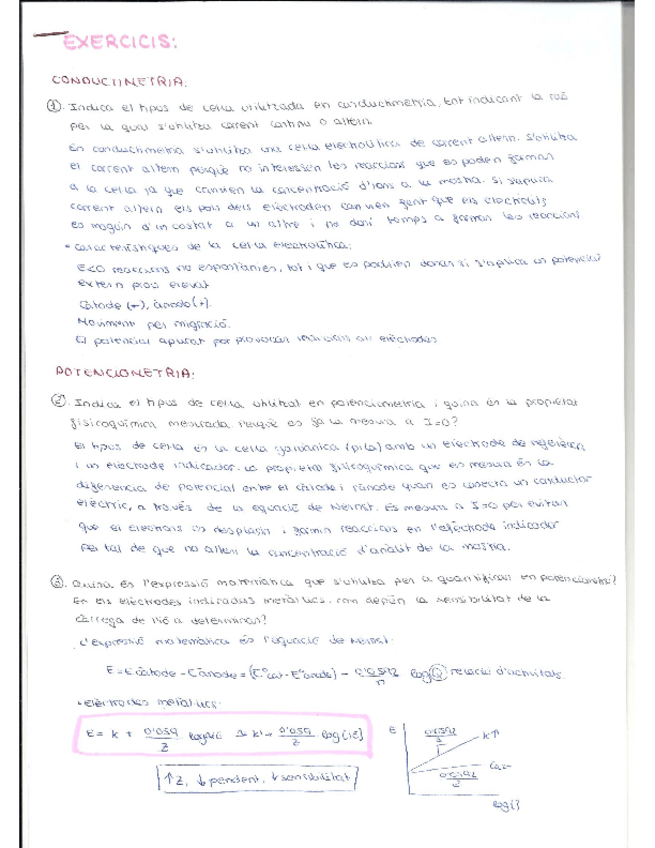 EXERCICIS:
CONDUCTIMETRIA:
① Indica el tipus de cel·la utilitzada en conductimetria, tot indicant la raó
per la qual s'utilitza corrent continu o altern.
En conductimetria s'utilitza una cel·la electrolítica de corrent altern. S'utilitza
el corrent altern perquè no interessen les reaccions que es poden formar
a la cel·la ja que canvien la concentració d'ions a la mostra. Si s'aplica
corrent altern els pols dels elèctrodes canvien fent que els electrons
es moguin d'un costat a un altre i no doni temps a formar les reaccions
• Característiques de la cel·la electrolítica:
E<0 reaccions no espontànies, tot i que es podrien donar si s'aplica un potencial
extern prou elevat
Càtode (-), ànode (+).
Moviment per migració.
El potencial aplicat pot provocar reaccions als elèctrodes
POTENCIOMETRIA:
② Indica el tipus de cel·la utilitzat en potenciometria i quina és la propietat
fisicoquímica mesurada. Perquè es fa la mesura a I=0?
El tipus de cel·la és la cel·la galvànica (pila) amb un elèctrode de referència
i un elèctrode indicador. La propietat fisicoquímica que es mesura és la
diferència de potencial entre el càtode i l'ànode quan es connecta un conductor
elèctric, a través de la equació de Nernst. Es mesura a I=0 per evitar
que els electrons es desplacin i formin reaccions en l'elèctrode indicador
per tal de que no alteri la concentració d'anàlit de la mostra.
③ Quina és l'expressió matemàtica que s'utilitza per a quantificar en potenciometria?
En els elèctrodes indicadors metàl·lics, com depèn la sensibilitat de la
càrrega de l'ió a determinar?
L'expressió matemàtica és l'equació de Nernst:
E = Ecàtode - Eànode = (E°cat - E°anode) - 0'0592/n log Q relació d'activitats.
• elèctrodes metàl·lics:
E = k + 0'059/z log 0'059/z log
↑z, ↓pendent, ↓sensibilitat
E
0'0592
k↑
0'0592
z